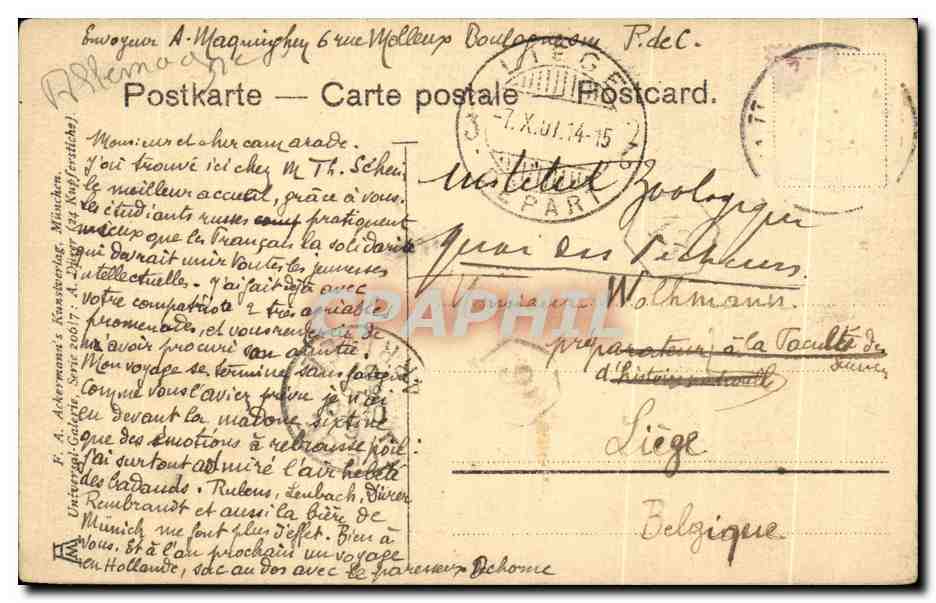 Envoyeur A. Magninghem 6 rue Molleux Boulogne s m P. de C.
Allemagne
Postkarte — Carte postale Postcard.
LIÈGE
3 -7.X.07.14-15
DÉPART
Monsieur et cher camarade.
J'ai trouvé ici chez M Th. Scheu
le meilleur accueil, grâce à vous.
Les étudiants russes pratiquent
mieux que les Français la solidarité
qui devrait unir toutes les jeunesses
intellectuelles. J'ai fait déjà avec
votre compatriote 2 très agréables
promenades, et vous remercie de
m'avoir procuré son amitié.
Mon voyage se termine sans fatigue
Comme vous l'aviez prévu je n'ai
eu devant la madone sixtine
que des émotions à rebrousse poil.
J'ai surtout admiré l'air hébété
des badauds. Rubens, Lenbach, Dürer
Rembrandt et aussi la bière de
Münich me font plus d'effet. Bien à
vous. Et à l'an prochain un voyage
en Hollande, sac au dos avec le paresseux Dehorne
Institut Zoologique
Quai des Pêcheurs
Monsieur Wolhmann
préparateur à la Faculté des
d'histoire naturelle
Liège
Belgique
F. A. Ackermann's Kunstverlag, München.
Universal-Galerie, Serie 206/17: A. Dürer (24 Kupferstiche)
CPAPHIL